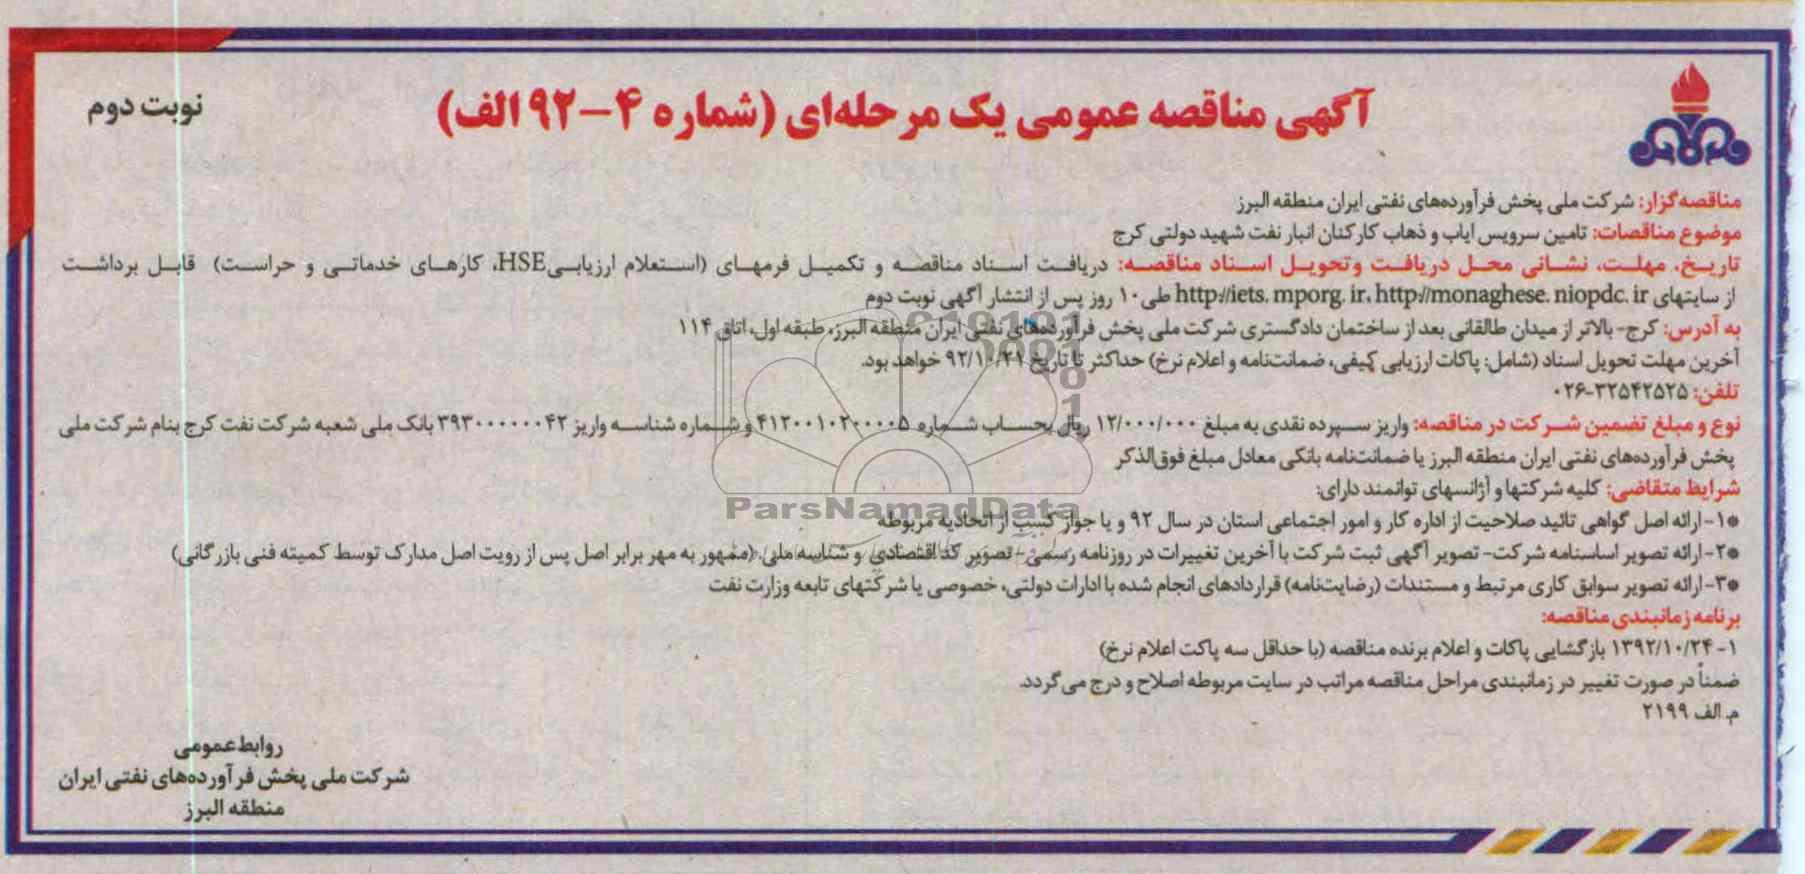 آگهی مناقصه عمومی یک مرحله‌ای (شماره ۴-۹۲الف)
نوبت دوم
مناقصه‌گزار: شرکت ملی پخش فرآورده‌های نفتی ایران منطقه البرز
موضوع مناقصات: تامین سرویس ایاب و ذهاب کارکنان انبار نفت شهید دولتی کرج
تاریخ، مهلت، نشانی محل دریافت وتحویل اسناد مناقصه: دریافت اسناد مناقصه و تکمیل فرمهای (استعلام ارزیابیHSE، کارهای خدماتی و حراست) قابل برداشت
از سایتهای http://iets.mporg.ir، http://monaghese.niopdc.ir طی۱۰ روز پس از انتشار آگهی نوبت دوم
به آدرس: کرج- بالاتر از میدان طالقانی بعد از ساختمان دادگستری شرکت ملی پخش فرآورده‌های نفتی ایران منطقه البرز، طبقه اول، اتاق ۱۱۴
آخرین مهلت تحویل اسناد (شامل: پاکات ارزیابی کیفی، ضمانت‌نامه و اعلام نرخ) حداکثر تا تاریخ ۹۲/۱۰/۲۱ خواهد بود.
تلفن: ۳۲۵۴۲۵۲۵-۰۲۶
نوع و مبلغ تضمین شرکت در مناقصه: واریز سپرده نقدی به مبلغ ۱۲/۰۰۰/۰۰۰ ریال بحساب شماره ۴۱۲۰۰۱۰۲۰۰۰۰۵ و شماره شناسه واریز ۳۹۳۰۰۰۰۰۰۰۴۲ بانک ملی شعبه شرکت نفت کرج بنام شرکت ملی
پخش فرآورده‌های نفتی ایران منطقه البرز یا ضمانت‌نامه بانکی معادل مبلغ فوق‌الذکر
شرایط متقاضی: کلیه شرکتها و آژانسهای توانمند دارای:
*۱-ارائه اصل گواهی تائید صلاحیت از اداره کار و امور اجتماعی استان در سال ۹۲ و یا جواز کسب از اتحادیه مربوطه
*۲-ارائه تصویر اساسنامه شرکت- تصویر آگهی ثبت شرکت با آخرین تغییرات در روزنامه رسمی- تصویر کد اقتصادی و شناسه ملی. (ممهور به مهر برابر اصل پس از رویت اصل مدارک توسط کمیته فنی بازرگانی)
*۳-ارائه تصویر سوابق کاری مرتبط و مستندات (رضایت‌نامه) قراردادهای انجام شده با ادارات دولتی، خصوصی یا شرکتهای تابعه وزارت نفت
برنامه زمانبندی مناقصه:
۱- ۱۳۹۲/۱۰/۲۴ بازگشایی پاکات و اعلام برنده مناقصه (با حداقل سه پاکت اعلام نرخ)
ضمناً در صورت تغییر در زمانبندی مراحل مناقصه مراتب در سایت مربوطه اصلاح و درج می‌گردد.
م. الف ۲۱۹۹
روابط عمومی
شرکت ملی پخش فرآورده‌های نفتی ایران
منطقه البرز
ParsNamadData